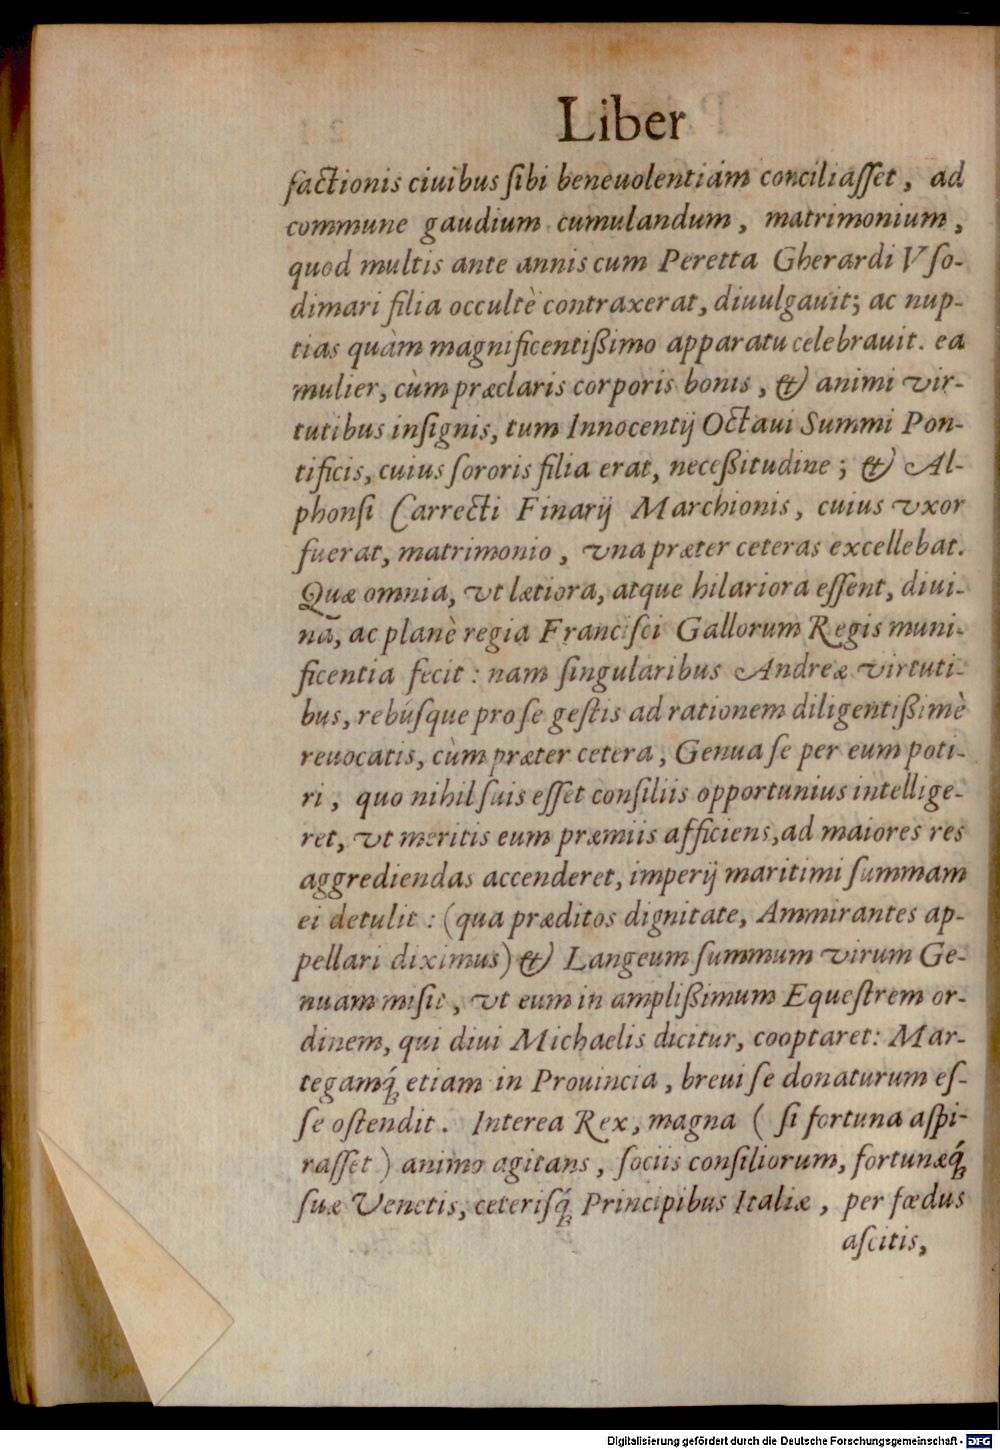 Liber
factionis ciuibus ſibi beneuolentiam conciliaſſet, ad
commune gaudium cumulandum, matrimonium,
quod multis ante annis cum Peretta Gherardi Vſo-
dimari filia occultè contraxerat, diuulgauit; ac nup-
tias quàm magnificentißimo apparatu celebrauit. ea
mulier, cùm præclaris corporis bonis, & animi vir-
tutibus inſignis, tum Innocentij Octaui Summi Pon-
tificis, cuius ſororis filia erat, neceßitudine; & Al-
phonſi Carrecti Finarij Marchionis, cuius vxor
fuerat, matrimonio, vna præter ceteras excellebat.
Quæ omnia, vt lætiora, atque hilariora eſſent, diui-
nā, ac planè regia Franciſci Gallorum Regis muni-
ficentia fecit: nam ſingularibus Andreæ virtuti-
bus, rebúſque pro ſe geſtis ad rationem diligentißimè
reuocatis, cùm præter cetera, Genua ſe per eum poti-
ri, quo nihil ſuis eſſet conſiliis opportunius intellige-
ret, vt meritis eum præmiis afficiens, ad maiores res
aggrediendas accenderet, imperij maritimi ſummam
ei detulit: (qua præditos dignitate, Ammirantes ap-
pellari diximus) & Langeum ſummum virum Ge-
nuam miſit, vt eum in amplißimum Equeſtrem or-
dinem, qui diui Michaelis dicitur, cooptaret: Mar-
tegamq́; etiam in Prouincia, breui ſe donaturum eſ-
ſe oſtendit. Interea Rex, magna (ſi fortuna aſpi-
raſſet) animo agitans, ſociis conſiliorum, fortunæq́;
ſuæ Venetis, ceteriſq́; Principibus Italiæ, per fœdus
aſcitis,
Digitalisierung gefördert durch die Deutsche Forschungsgemeinschaft - DFG